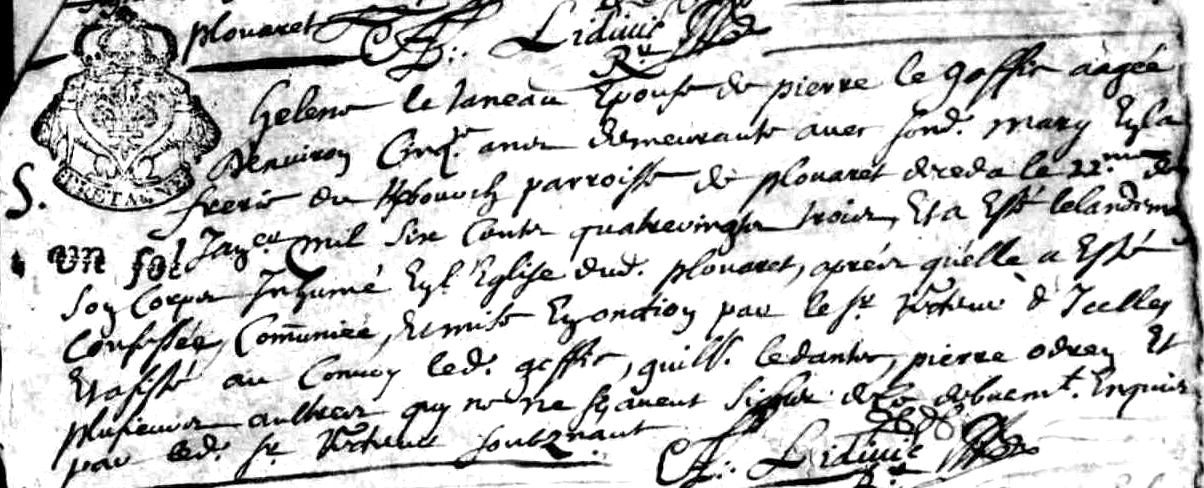 plouaret
Lidivic
Rr
helene le Janeau Epouse de pierre le goffic aagée
D'enuiron Cinqte ans demeurante avec sond. mary En la
S.
frerie du parroisse de plouaret deceda le 22me de
BRETAGNE
Janer mil six Cents quatrevingts trois, Et a Esté lelandemain
VN SOL
son Corps Inhumé En l'Eglise dud. plouaret, aprés qu'elle a Esté
Confessée, Com̄uniée, et mise En onction par le sr Recteur d'Icelle
Et asisté au Convoy led. goffic, guill. ledantec, pierre odren Et
plusieurs aultres qui ne ne sçavent Signer de ce debuemt. Enquis
par led. sr Recteur soubznant
Lidivic
Rr